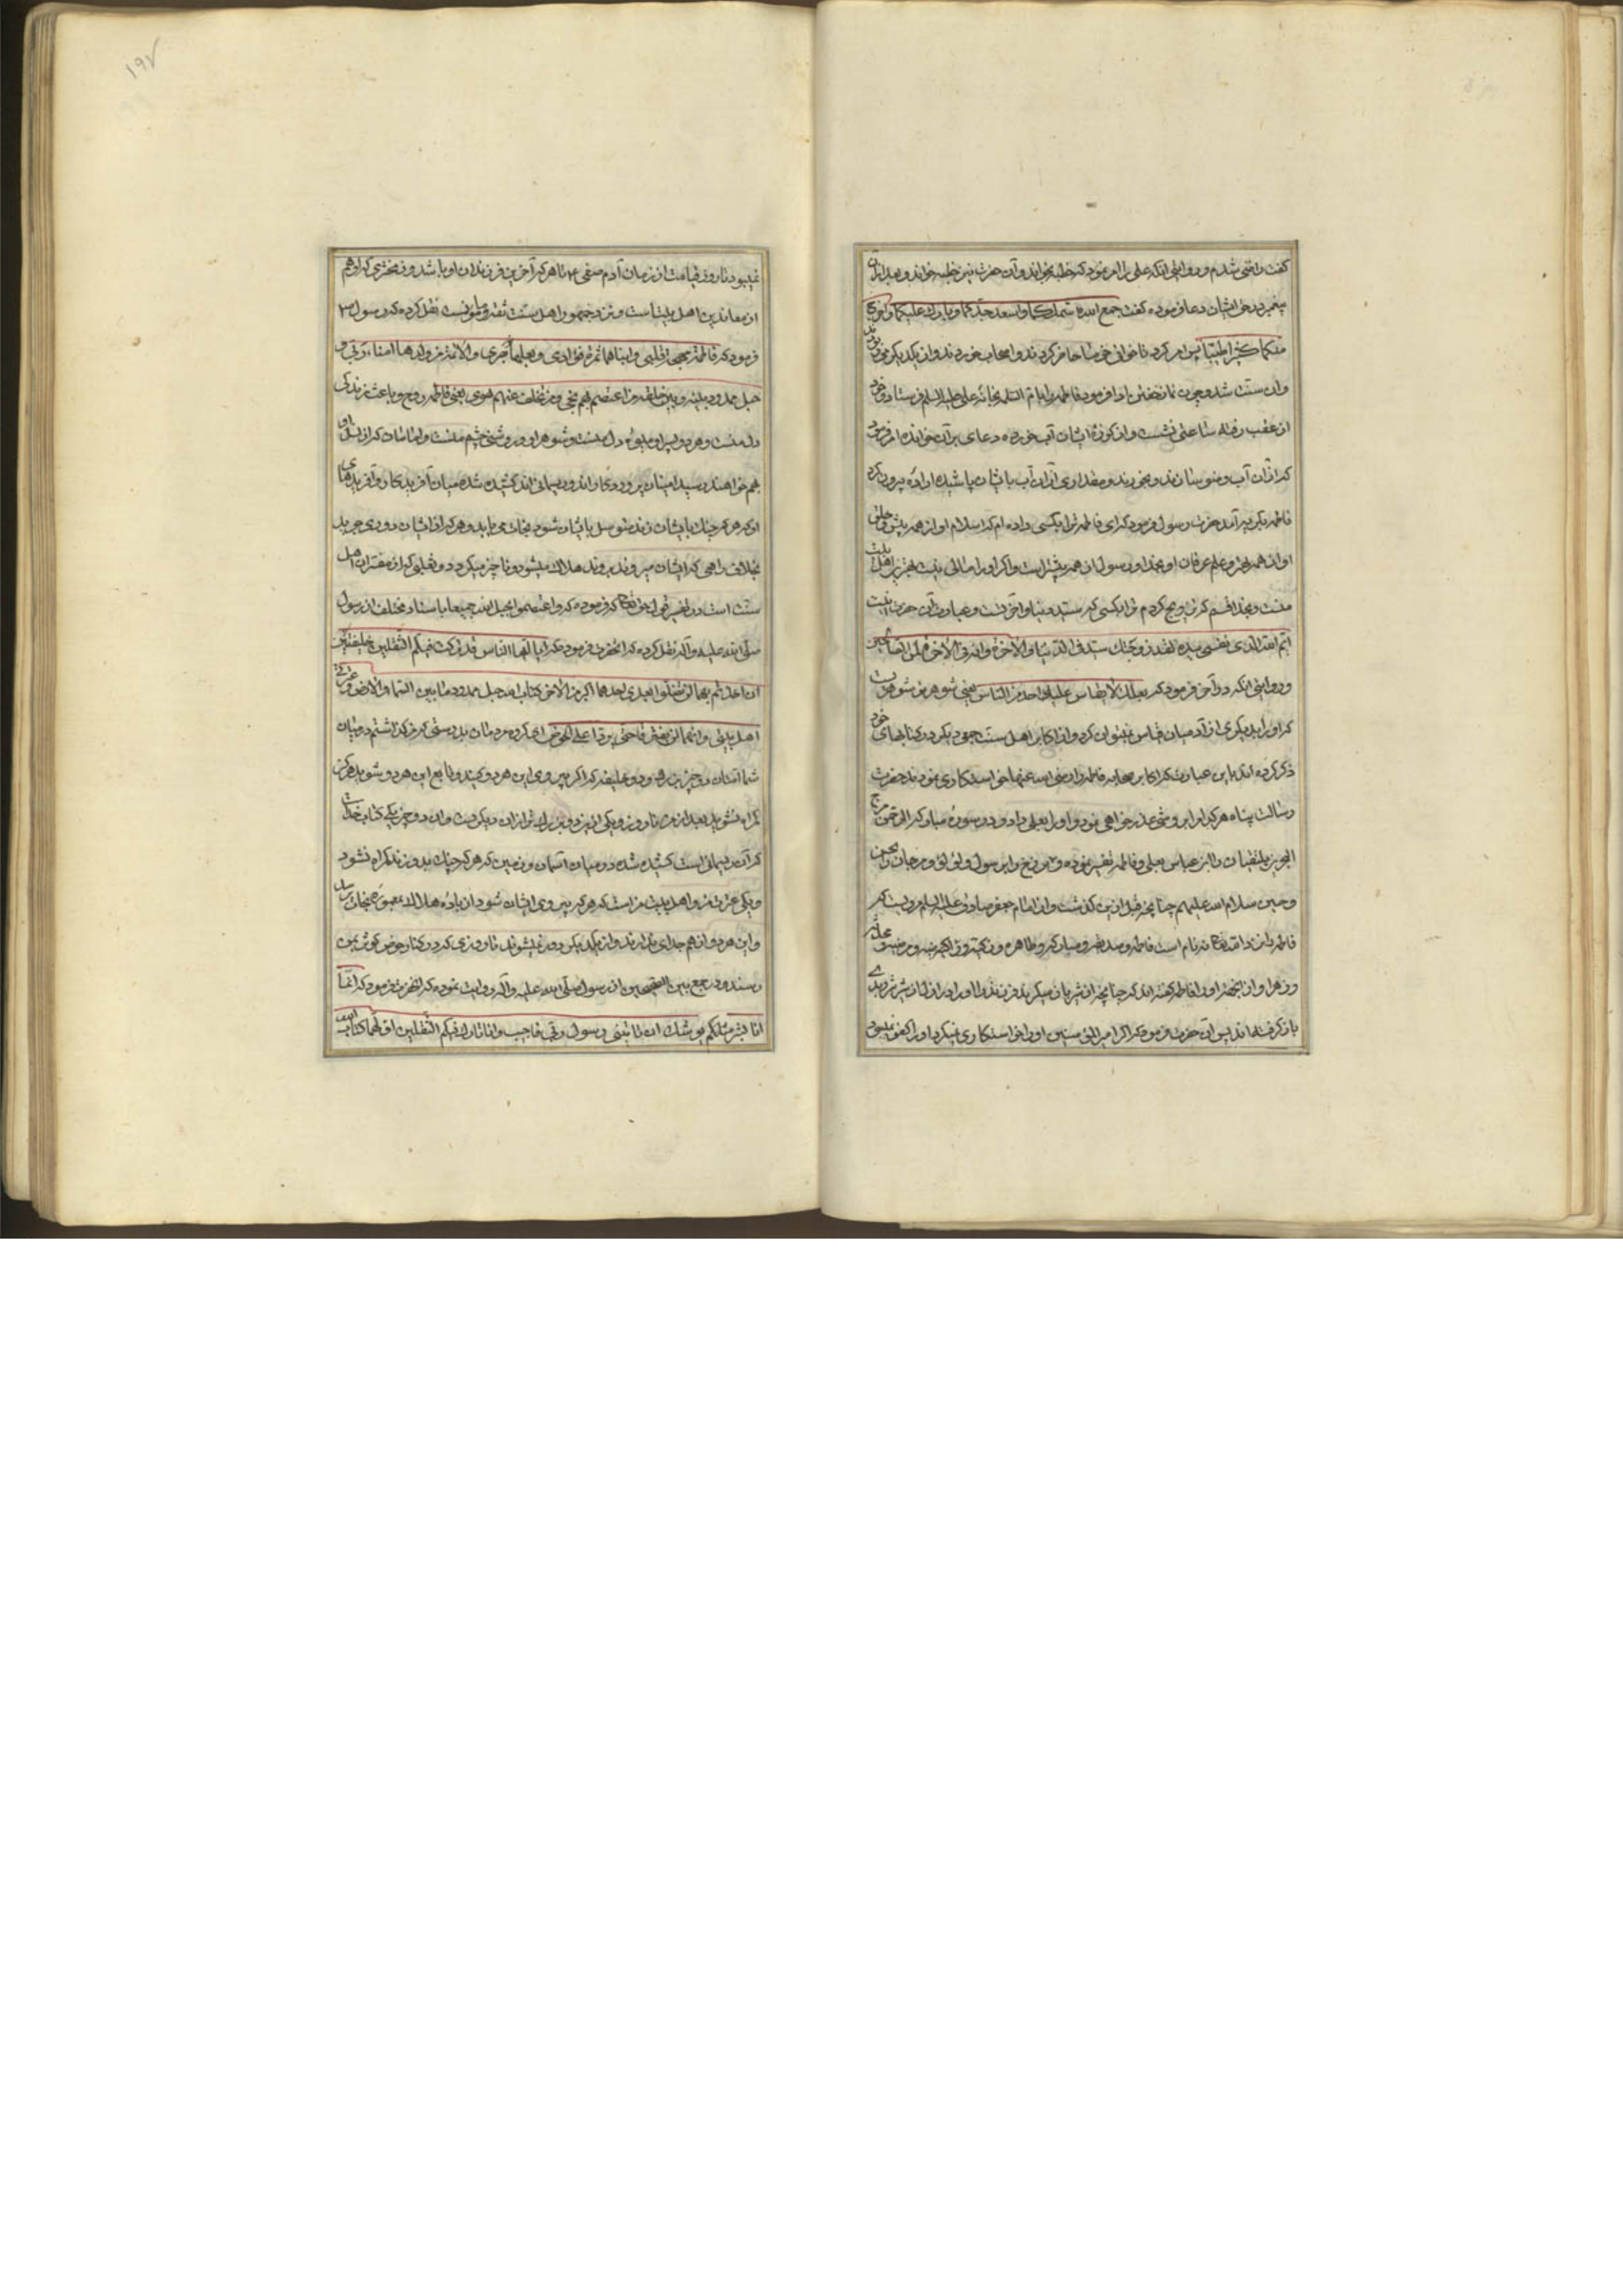 کفت راضی شدم و روایتی انکه علی را امر نمود که خطبه بخواند و آن حضرت نیز خطبه خواند و بعد ازان
پیغمبر در حق ایشان دعا فرموده کفت جمع الله شملکما و اسعد جدکما و بارک علیکما و اخرج
منکما کثیرا طیبا پس امر کرد تا خوانی خرما حاضر کردند و اصحاب خوردند و از یکدیکر می ربودند
و ان سنت شد و چون نماز خفتن ادا فرمود فاطمه را با ام السلمه بخانه علی علیه السلم فرستاد و خود
از عقب رفته ساعتی نشست و از کوزه ایشان آب خورده دعای بر آن خوانده امر فرمود
که ازان آب وضو سازند و بخورند و مقداری ازان آب بایشان پاشیده اراده بیرون کرد
فاطمه بکریه آمد حضرت رسول فرمود که ای فاطمه ترا بکسی داده ام که اسلام او از همه پیش و خلق
او از همه بهتر و علم عرفان او بخدا و رسول از همه بیشتر است و اکر او را مالی نیست بهترین اهل بیت
منست و بخدا قسم که تزویج کردم ترا بکسی که سید دنیا و آخرتست و عبارت آن حضرت اینست
ایم الله الذی نفسی بیده لقد زوجتک سیدا فی الدنیا و الآخرة و انه فی الآخرة لمن الصالحین
و روایتی انکه در آخر فرمود که بعلک لا یقاس علیه احد من الناس یعنی شوهر تو شوهریست
که او را بدیکری از آدمیان قیاس نمیتوان کرد و از اکابر اهل سنت جمعی دیکر در کتابهای خود
ذکر کرده اند باین عبارت که اکابر صحابه فاطمه را رضی الله عنها خواستکاری نمودند حضرت
رسالت پناه هر کدام را بروشی عذر خواهی نمود و او را بعلی داد و در سوره مبارکه الرحمن مرج
البحرین یلتقیان را ابن عباس بعلی و فاطمه تفسیر نموده و برزخ را برسول و لؤلؤ و مرجان را بحسن
و حسین سلام الله علیهم چنانچه قبل ازین کذشت و از امام جعفر صادق علیه السلم مرویست که
فاطمه را نزد الله تعالی نه نام است فاطمه و صدیقه و مبارکه و طاهره و زکیه و راضیه و مرضیه و محدثه
و زهرا و از انجهة او را فاطمه کفته اند که چنانچه از شر باز میکیرند فرزند را او را از شر
باز کرفته اند پس آن حضرت فرمود که اکر امیر المؤمنین او را خواستکاری نمیکرد او را کفوی نمیبود
نمیبود تا روز قیامت از زمان آدم صفی تا هر که آخرین فرزندان او باشد و زمخشری که او هم
از معاندین اهل بیت است و نزد جمهور اهل سنت ثقه و مامونست نقل کرده که رسول
فرمود که فاطمة بهجة قلبی و ابناها ثمرة فؤادی و بعلها نور بصری و الائمة من ولدها امناء ربی و
حبل ممدود بینه و بین خلقه من اعتصم بهم نجی و من تخلف عنهم هوی یعنی فاطمه روح و باعث زندکی
دل منست و هر دو پسر او میوهٔ دل منست و شوهر او روشنی چشم منست و امامان که از نسل او
بهم خواهند رسید امینان پروردکار اند و ریسمانی اند کشیده شده میان آفریدکار و آفریدهای
او که هر که چنک بایشان زند متوسل بایشان شود نجات می یابد و هر که از ایشان دوری جوید
بخلاف راهی که ایشان میروند برود هلاک میشود و ناچیز میکردد و ثعلبی که از مفسران اهل
سنت است در تفسیر قول حق تعالی که فرموده که و اعتصموا بحبل الله جمیعا باسناد مختلف از رسول
صلی الله علیه و آله نقل کرده که انحضرت فرمود که ایا ایها الناس قد ترکت فیکم الثقلین خلیفتین
ان اخذتم بهما لن تضلوا بعدی احدهما اکبر من الاخر کتاب الله حبل ممدود ما بین السماء و الارض و عترتی
اهل بیتی و انهما لن یفترقا حتی یردا علی الحوض ای کروه مردمان بدرستی که من کذاشتم در میان
شما امتان دو چیز بزرک و دو خلیفه که اکر پیروی این هر دو کنید و تابع این هر دو شوید هرکز
کمراه نشوید بعد از من تا روز و یکی ازین دو بزرکتر از ان دیکریست و ان دو چیز یکی کتاب خداست
که آن ریسمانی است کشیده شده در میان آسمان و زمین که هر که چنک بدو زند کمراه نشود
و یکی عترت من و اهل بیت من است که هر که پیروی ایشان شود از بادیهٔ هلاک بمعموره نجات رسد
و این هر دو از هم جدای ندارند و از یکدیکر دور نمیشوند تا روزی که در کنار حوض کوثر بمن
رسند و در جمع بین الصحیحین از رسول صلی الله علیه و آله روایت نموده که انحضرت فرمود که انما
انا بشر مثلکم یوشک ان تاتینی رسول ربی فاجیب و انا تارک فیکم الثقلین اولهما کتاب الله
۱۹۷